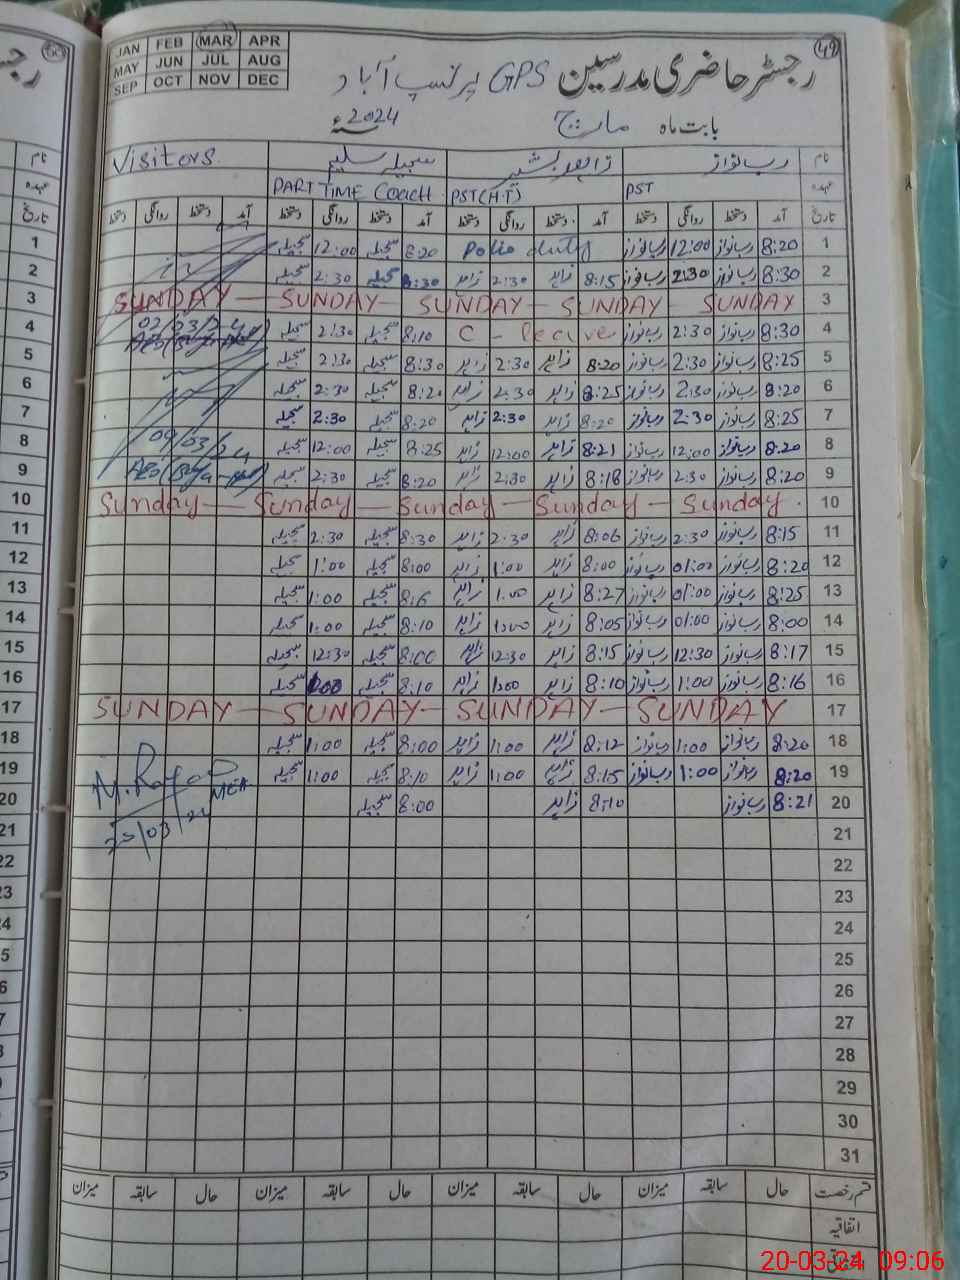 JAN FEB MAR APR
MAY JUN JUL AUG
SEP OCT NOV DEC
49
رجسٹر حاضری مدرسین GPS پرتیپ آباد
بابت ماہ مارچ 2024ء
نام رب نواز زاہد بشیر سجیلہ سلیم Visitors
عہدہ PST PST(H.T) PART TIME Coach
تاریخ آمد دستخط روانگی دستخط آمد دستخط روانگی دستخط آمد دستخط روانگی دستخط آمد دستخط روانگی دستخط
1 8:20 رب نواز 12:00 رب نواز Polio duty 8:20 سجیلہ 12:00 سجیلہ
2 8:30 رب نواز 2:30 رب نواز 8:15 زاہد 2:30 زاہد 8:30 سجیلہ 2:30 سجیلہ
3 SUNDAY — SUNDAY SUNDAY — SUNDAY SUNDAY
4 8:30 رب نواز 2:30 رب نواز C - leave 8:10 سجیلہ 2:30 سجیلہ 02/03/24
5 8:25 رب نواز 2:30 رب نواز 8:20 زاہد 2:30 زاہد 8:30 سجیلہ 2:30 سجیلہ
6 8:20 رب نواز 2:30 رب نواز 8:25 زاہد 2:30 زاہد 8:20 سجیلہ 2:30 سجیلہ
7 8:25 رب نواز 2:30 رب نواز 8:20 زاہد 2:30 زاہد 8:20 سجیلہ 2:30 سجیلہ
8 8:20 رب نواز 12:00 رب نواز 8:21 زاہد 12:00 زاہد 8:25 سجیلہ 12:00 سجیلہ 09/03/24
9 8:20 رب نواز 2:30 رب نواز 8:18 زاہد 2:30 زاہد 8:20 سجیلہ 2:30 سجیلہ
10 Sunday — Sunday — Sunday — Sunday — Sunday
11 8:15 رب نواز 2:30 رب نواز 8:06 زاہد 2:30 زاہد 8:30 سجیلہ 2:30 سجیلہ
12 8:20 رب نواز 01:00 رب نواز 8:00 زاہد 1:00 زاہد 8:00 سجیلہ 1:00 سجیلہ
13 8:25 رب نواز 01:00 رب نواز 8:27 زاہد 1:00 زاہد 8:6 سجیلہ 1:00 سجیلہ
14 8:00 رب نواز 01:00 رب نواز 8:05 زاہد 1:00 زاہد 8:10 سجیلہ 1:00 سجیلہ
15 8:17 رب نواز 12:30 رب نواز 8:15 زاہد 12:30 زاہد 8:00 سجیلہ 12:30 سجیلہ
16 8:16 رب نواز 1:00 رب نواز 8:10 زاہد 1:00 زاہد 8:10 سجیلہ 1:00 سجیلہ
17 SUNDAY — SUNDAY — SUNDAY — SUNDAY
18 8:20 رب نواز 1:00 رب نواز 8:12 زاہد 1:00 زاہد 8:00 سجیلہ 1:00 سجیلہ
19 8:20 رب نواز 1:00 رب نواز 8:15 زاہد 1:00 زاہد 8:10 سجیلہ 1:00 سجیلہ MEA
20 8:21 رب نواز 8:10 زاہد 8:00 سجیلہ
21
22
23
24
25
26
27
28
29
30
31
قسم رخصت حال سابقہ میزان حال سابقہ میزان حال سابقہ میزان حال سابقہ میزان
اتفاقیہ
20-03-24 09:06